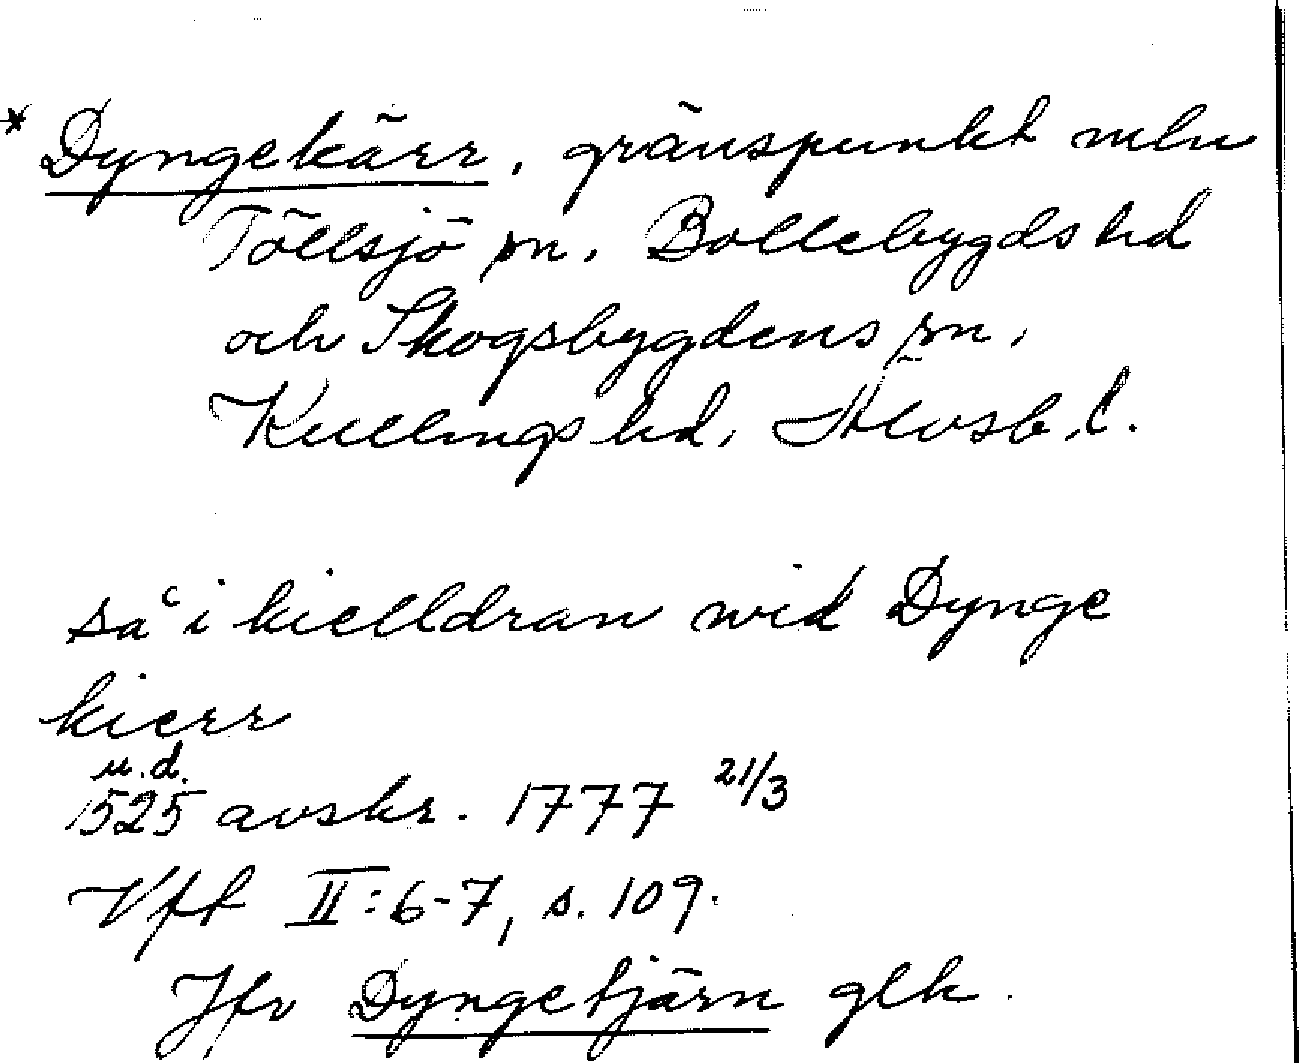 * Dyngekärr, gränspunkt mln
Töllsjö sn, Bollebygds hd
och Skogsbygdens sn,
Kullings hd, Älvsb. l.
så i kielldran wid Dynge
kierr
u.d.
1525 avskr. 1777 21/3
Vft II:6-7, s. 109.
Jfr Dyngetjärn glk.